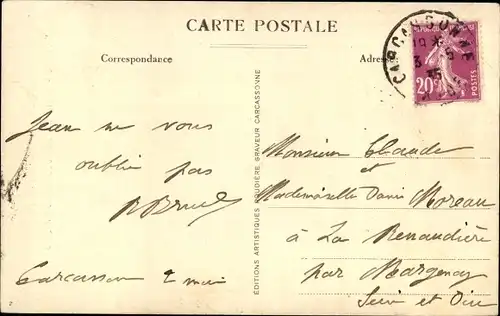 CARTE POSTALE
Correspondance
Adresse
CARCASSONNE
3 - 5
35
20c
POSTES
Jean ne vous
oublie pas
Carcassonne 2 mai
ÉDITIONS ARTISTIQUES ROUDIÈRE GRAVEUR CARCASSONNE
Monsieur Claude
et
Mademoiselle Moreau
à La Renaudière
par Margency
Seine et Oise